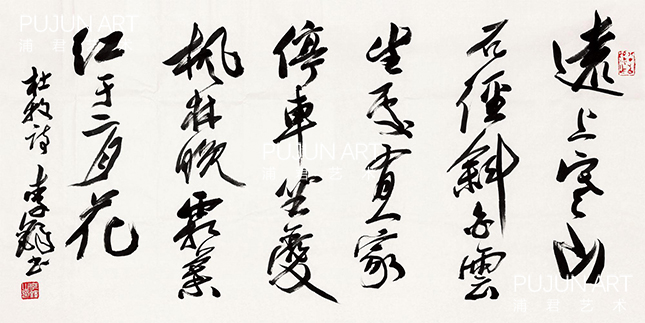 遠上寒山
石徑斜白雲
生處有人家
停車坐愛
枫林晚霜葉
红于二月花
杜牧诗 李 书
PUJUN ART
浦君艺术
PUJUN ART
浦君艺术
PUJUN ART
浦君艺术